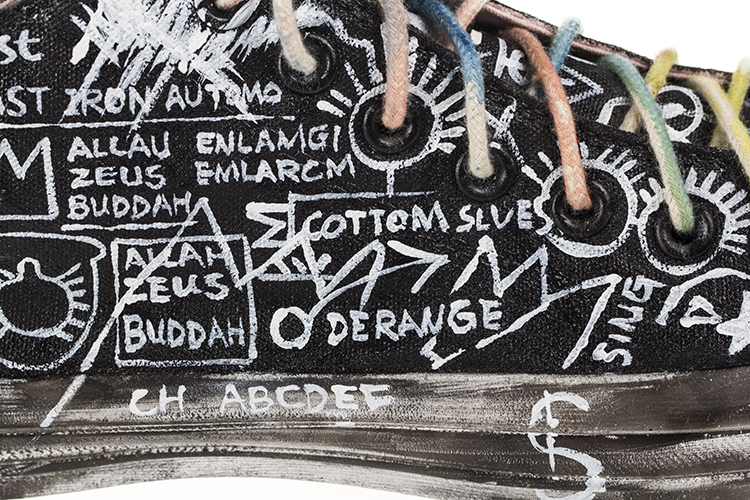 st
AST IRON AUTOMO
ALLAU
ZEUS
BUDDAH
ENLAMGI
EMLARCM
COTTOM SLUES
ALLAH
ZEUS
BUDDAH
DERANGE
SING
CH ABCDEE
$